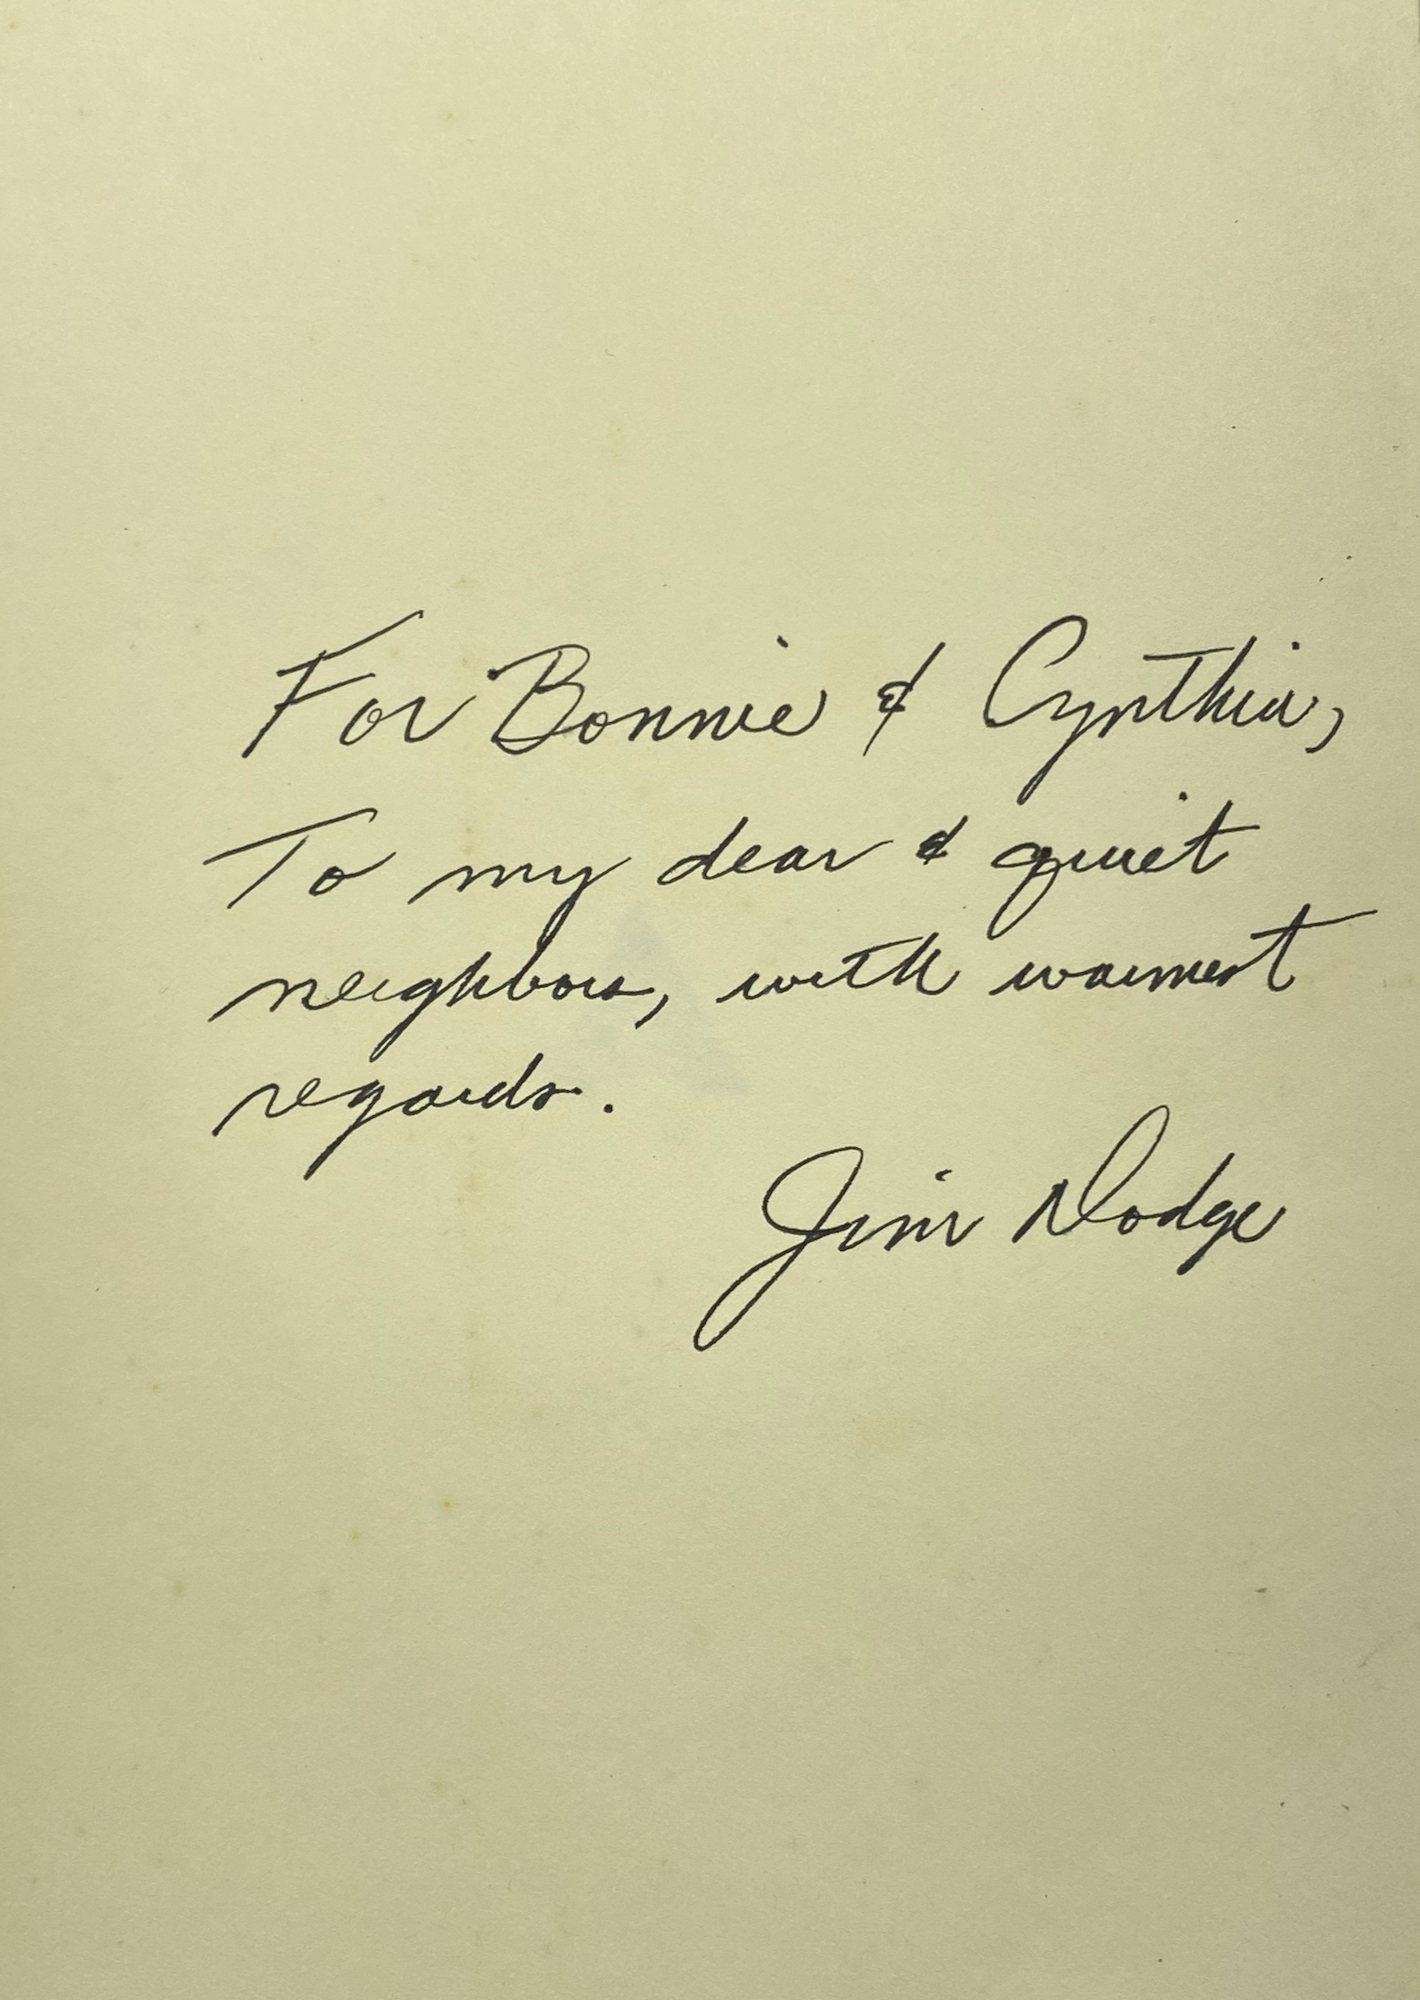 For Bonnie & Cynthia,
To my dear & quiet
neighbors, with warmest
regards.
Jim Dodge